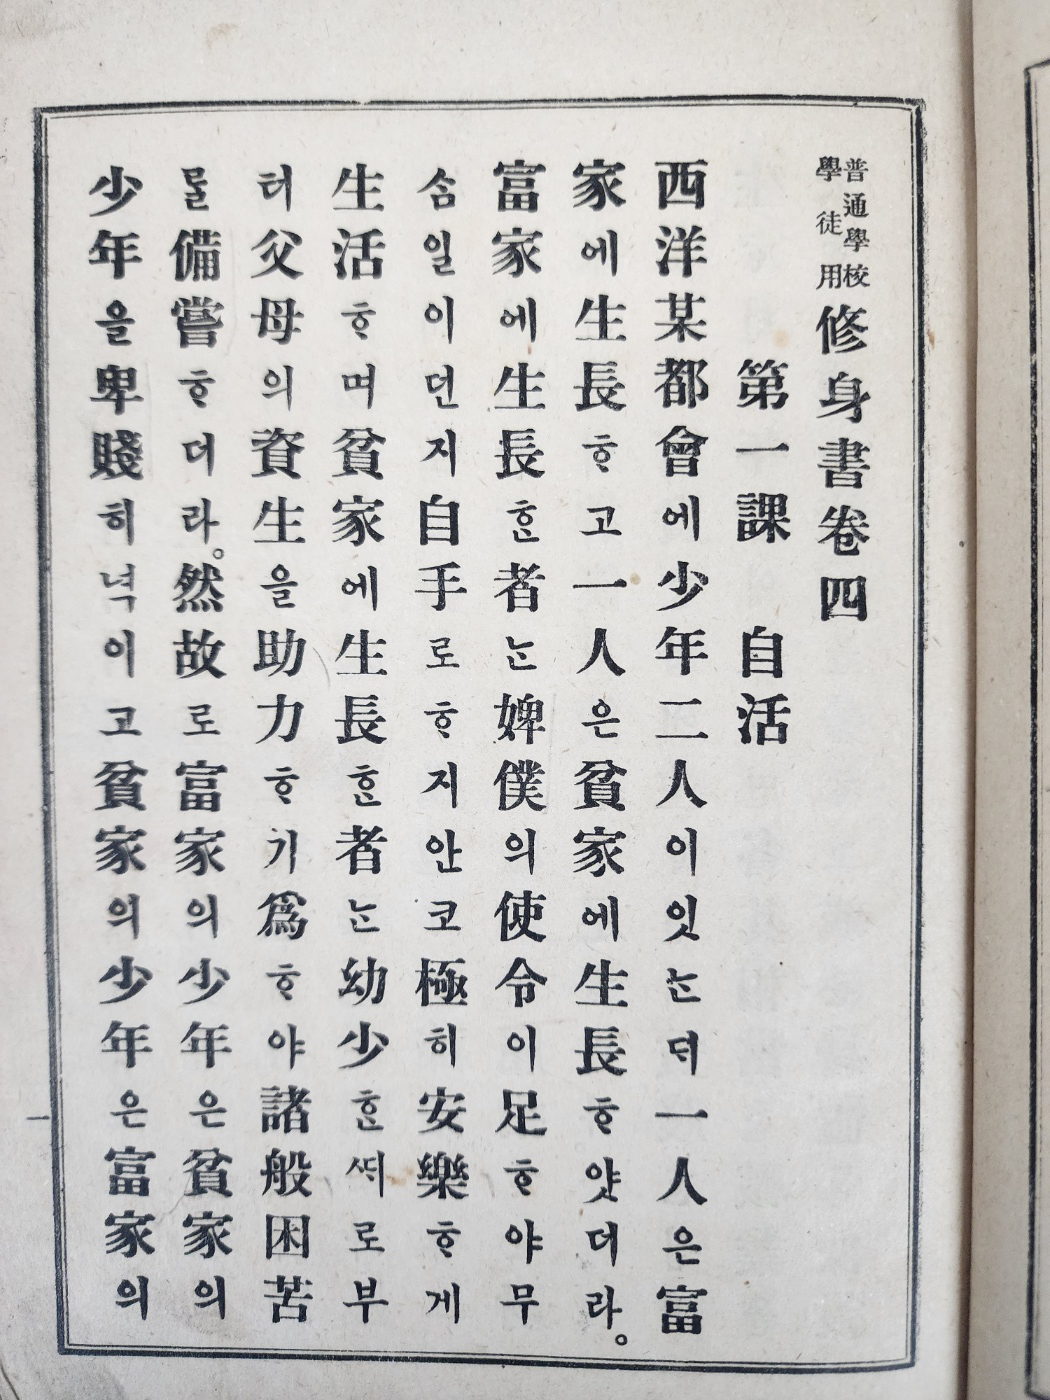 普通學校學徒用 修身書卷四
第一課 自活
西洋某都會에少年二人이잇ᄂᆞᆫᄃᆡ一人은富
家에生長ᄒᆞ고一人은貧家에生長ᄒᆞ얏더라。
富家에生長ᄒᆞᆫ者ᄂᆞᆫ婢僕의使令이足ᄒᆞ야무
ᄉᆞᆷ일이던지自手로ᄒᆞ지안코極히安樂ᄒᆞ게
生活ᄒᆞ며貧家에生長ᄒᆞᆫ者ᄂᆞᆫ幼少ᄒᆞᆫᄯᆡ로부
터父母의資生을助力ᄒᆞ기爲ᄒᆞ야諸般困苦
ᄅᆞᆯ備嘗ᄒᆞ더라。然故로富家의少年은貧家의
少年을卑賤히녁이고貧家의少年은富家의
一